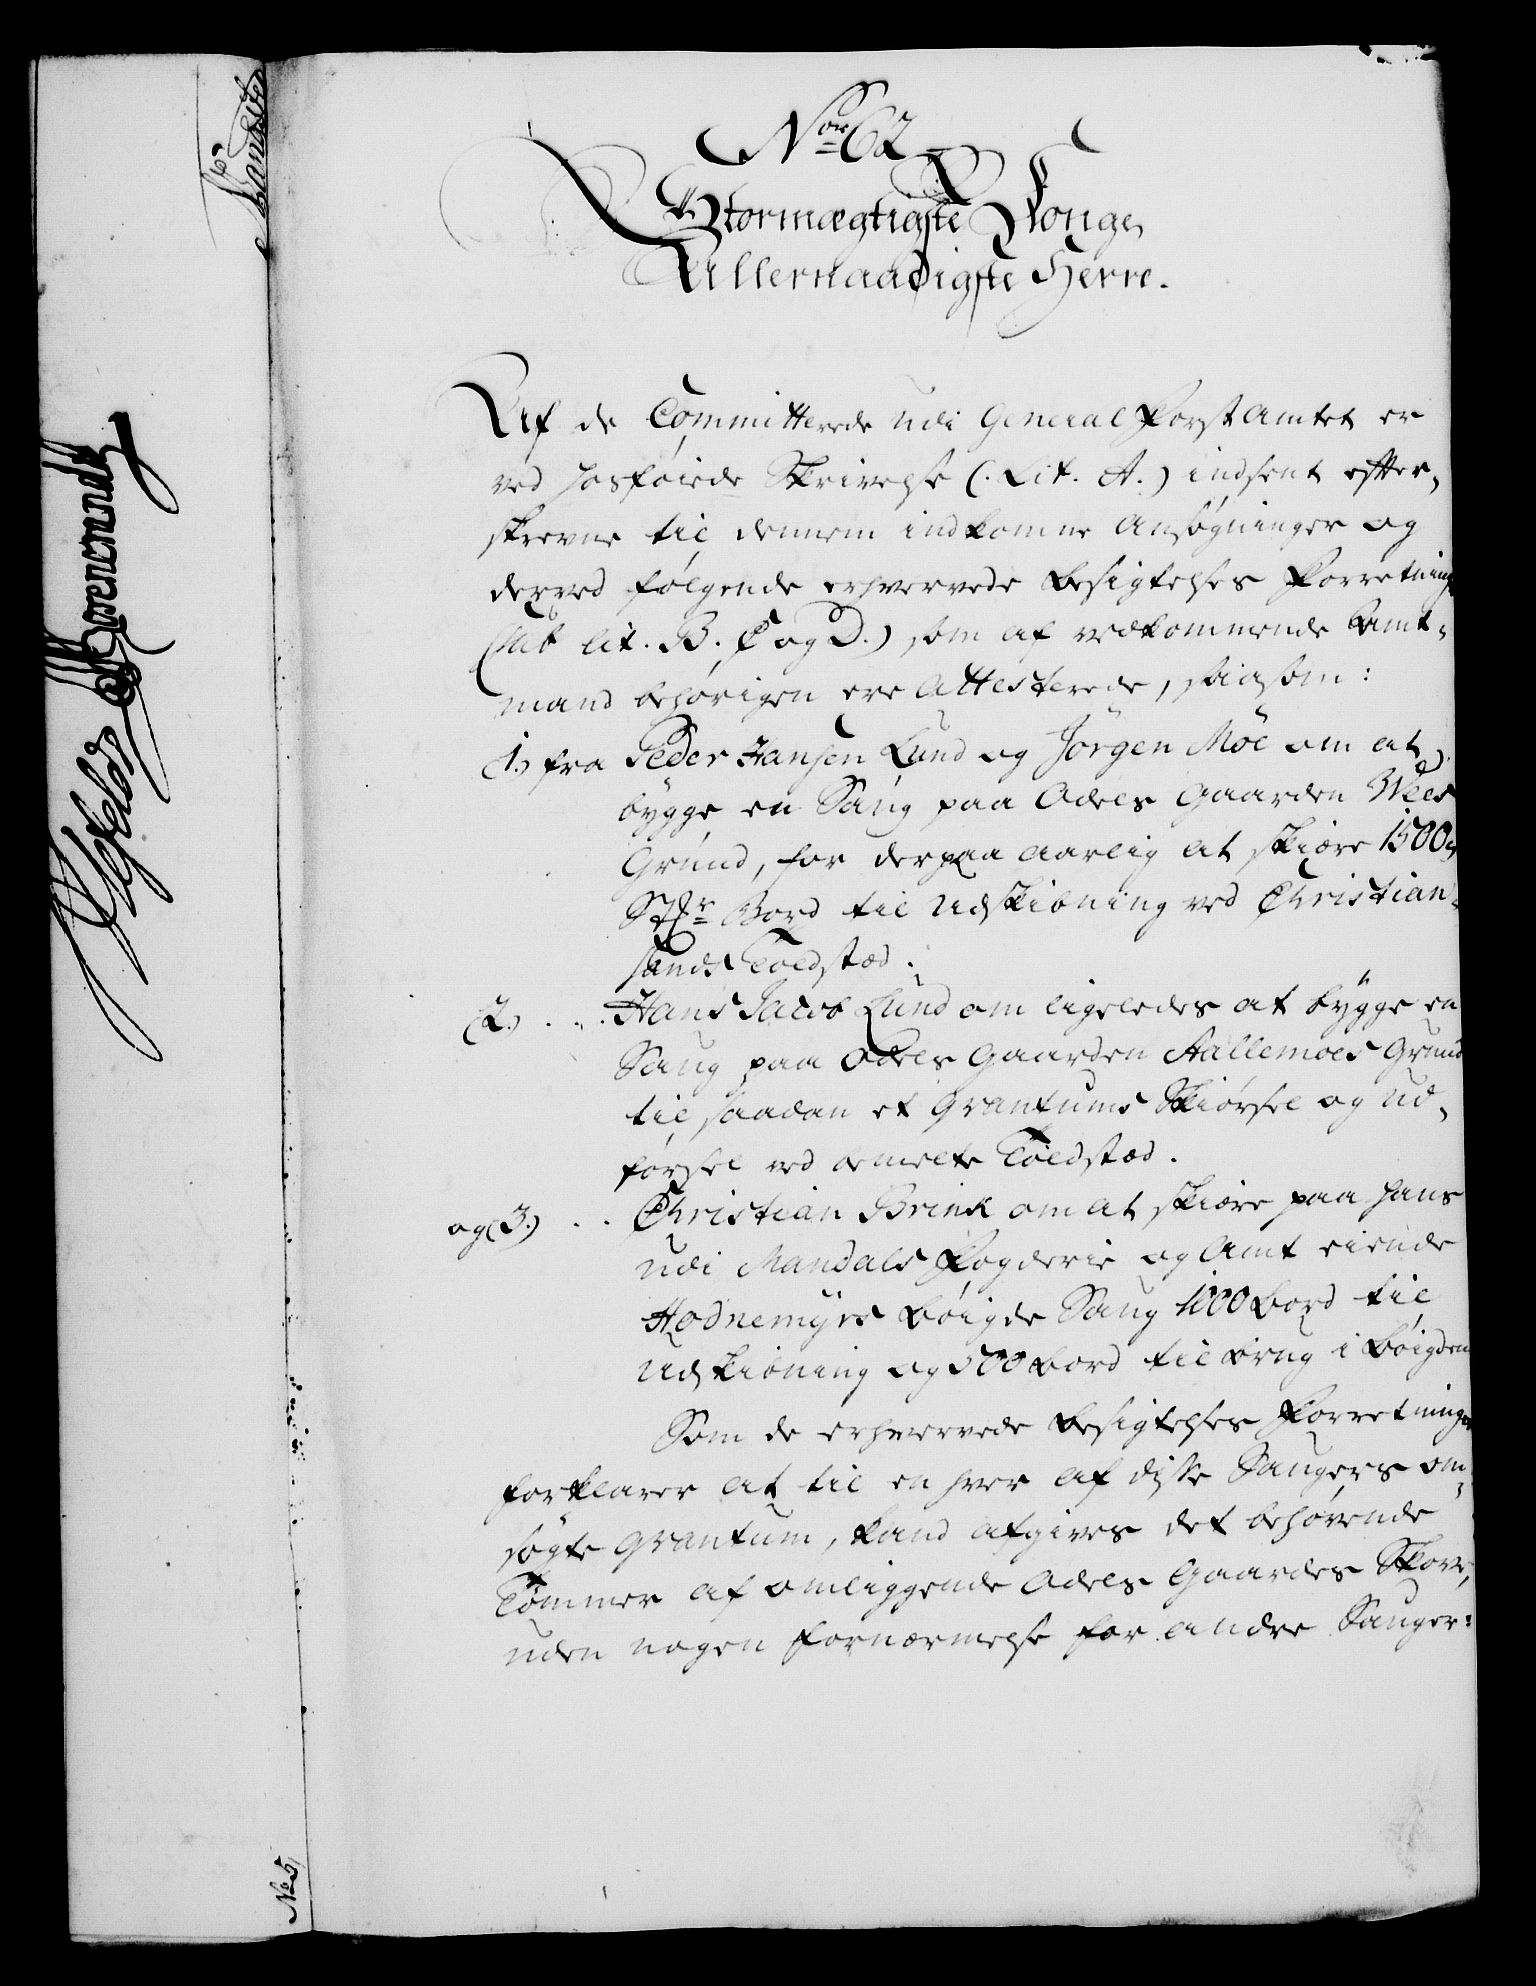 Nor 62
Stormægtigste Konge,
Allernaadigste Herre.
Af de Committerede udi General Forst Amtet er
ved hosføiede Skrivelse (: Lit. A.) indsent efter,
skrevne til dennem indkomne Ansøgninger og
derved følgende erhvervede Besigtelses Forretninger
(sub lit. B. C og D.) som af vedkommende Amt-
mand behørigen ere Attesterede, saasom:
(1.) fra Peder Hansen Lund og Jörgen Möe om at
bÿgge en Saug paa Odels Gaarden Wees
Grund, for derpaa aarlig at skiære 1500
Bord til Udskibning ved Christian-
sands Toldstæd.
(2.) . . . Hans Jacob Lund om ligeledes at bÿgge en
Saug paa Odels Gaarden Stallemoes Grund
til saadan et Qvantums Skiørsel og Ud,
førsel ved bemelte Toldstæd.
og (3.) . . Christian Brink om at skiære paa hans
udi Mandals Fogderie og Amt eiende
Hodnemÿrs bøigde Saug 1000 Bord til
Udskibning og 500 Bord til brug i Bøigden
Som de erhvervede Besigtelses Forretninger
forklarer at til en hver af disse Saugers om-
søgte Qvantum, kand afgives det behøvende
Tømmer af omliggende Odels Gaardes Skove,
uden nogen Fornærmelse for andre Sauger:
No 5